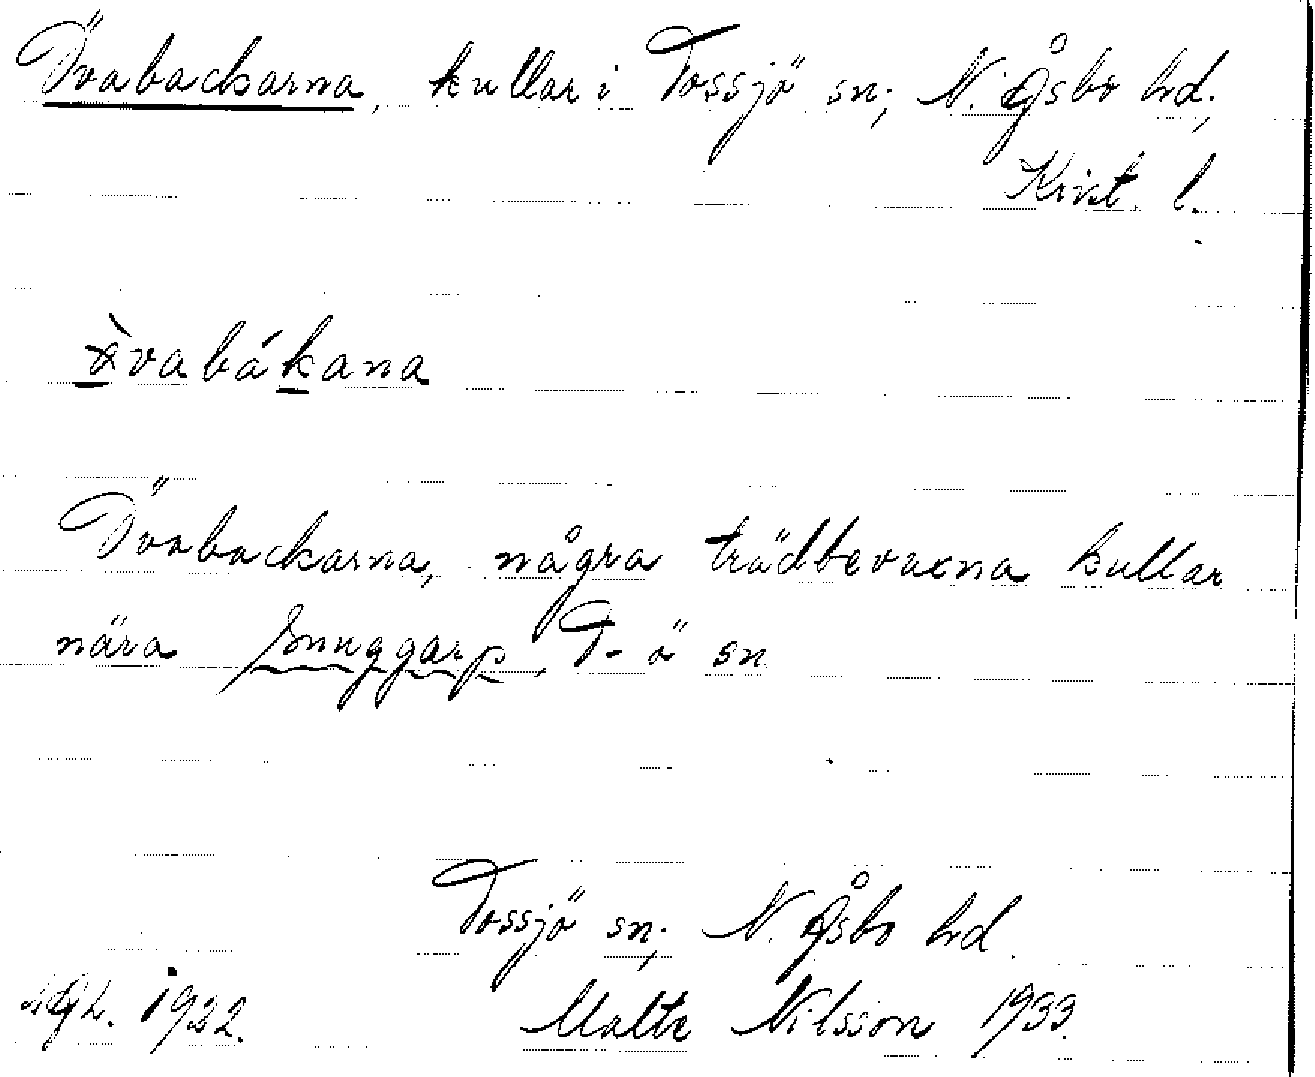 Övabackarna, kullar i Tossjö sn; N. Åsbo hd;
Krist. l.
vabákana
Övabackarna, några trädbevuxna kullar
nära Snuggarp, T-ö sn
Tossjö sn; N. Åsbo hd.
1922. Malte Nilsson 1933.